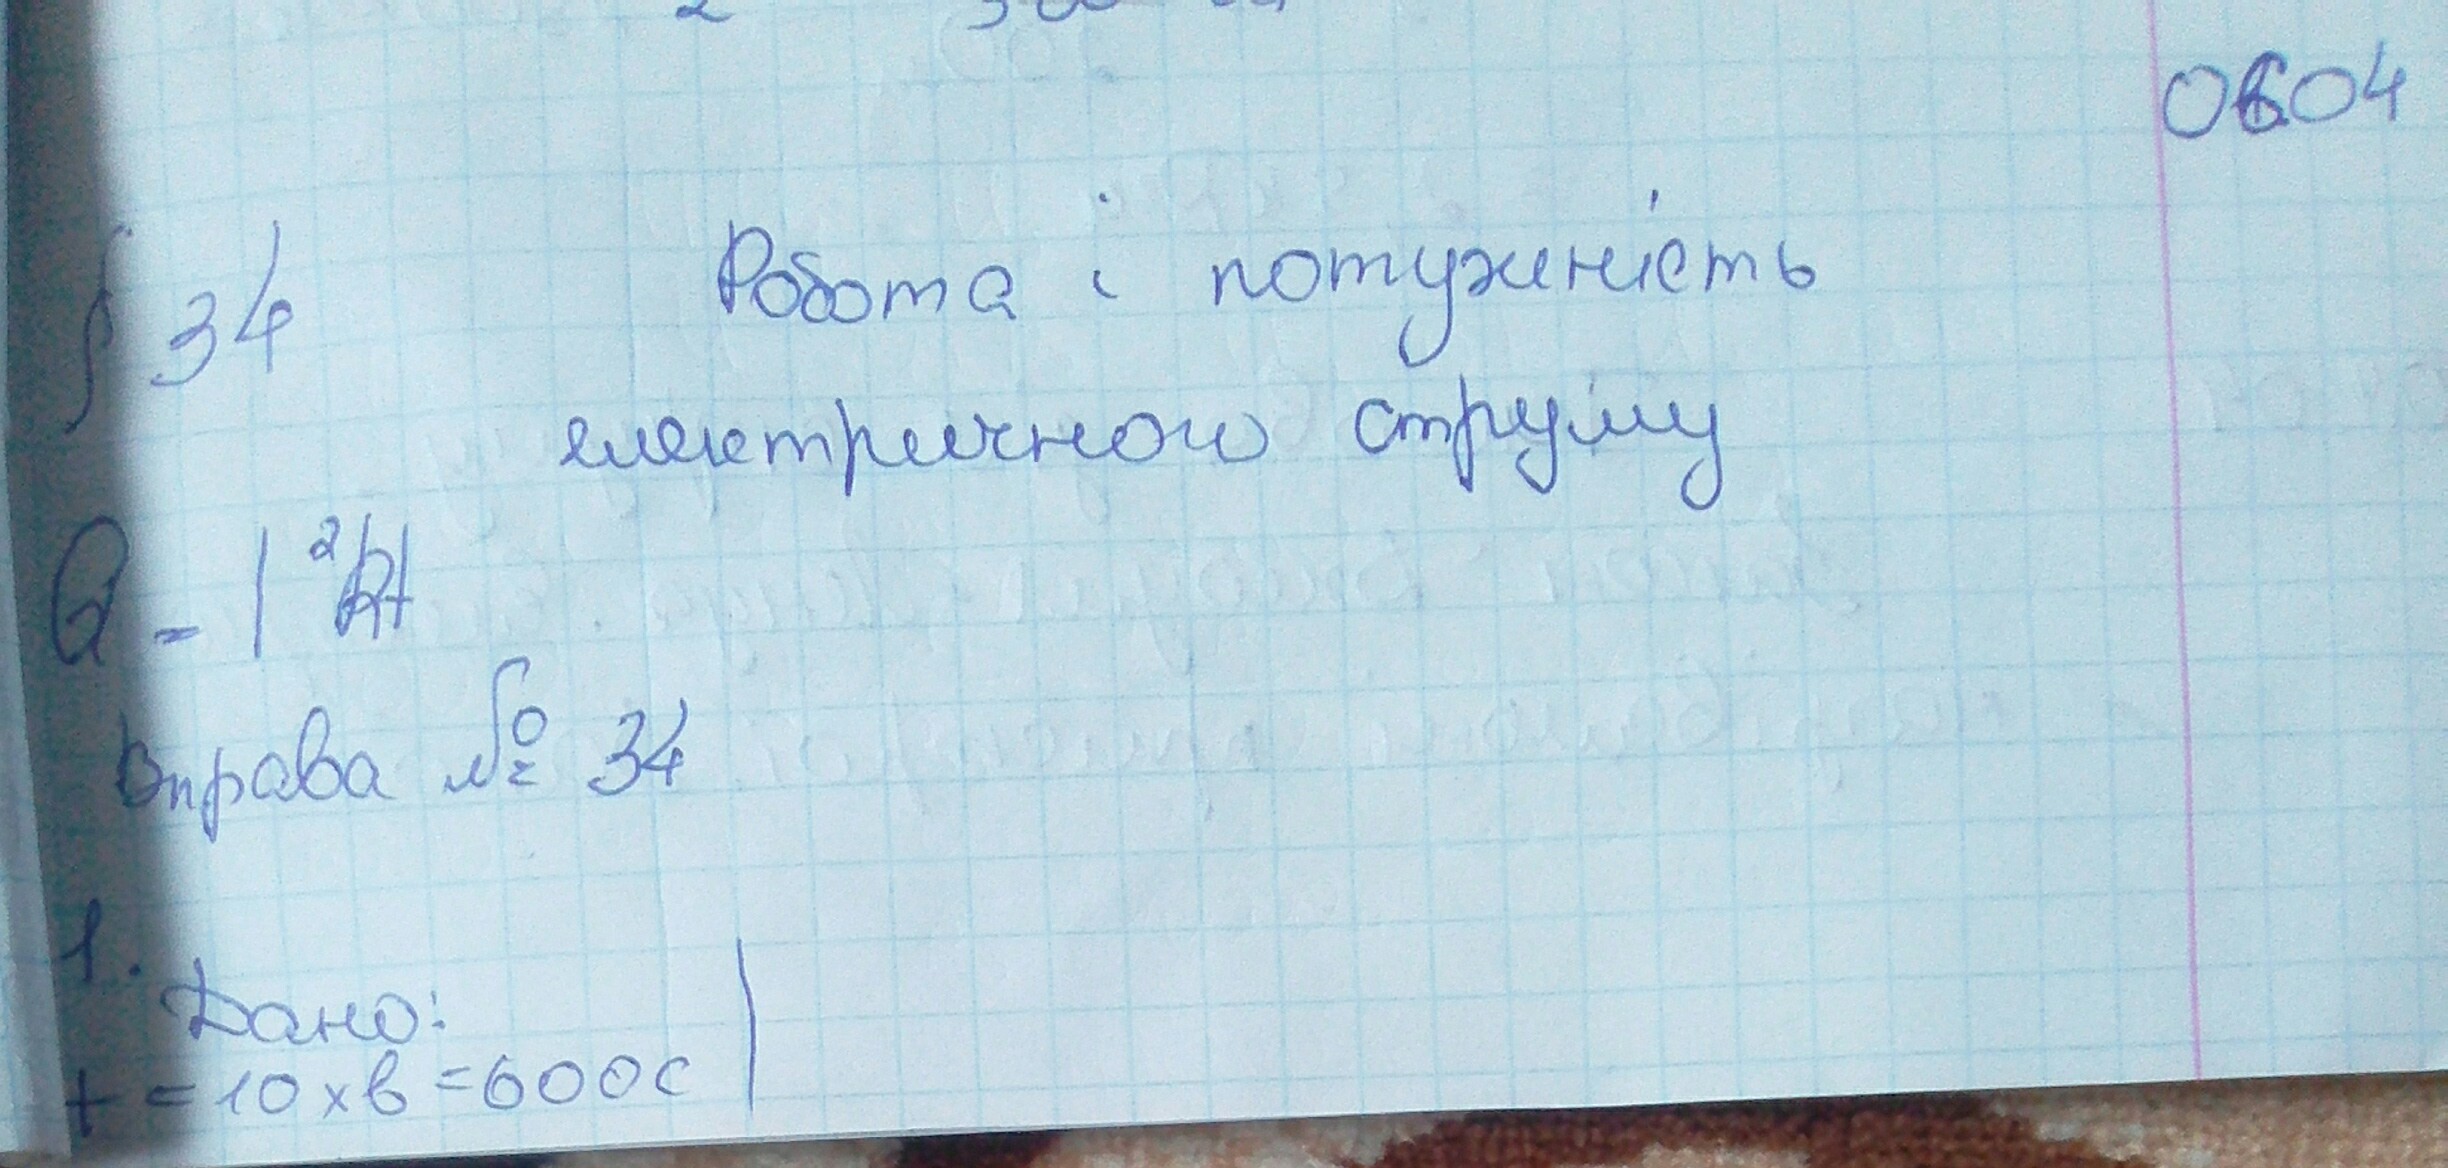 0604
§ 34 Робота і потужність
електричного струму
Q = I²Rt
Вправа № 34
1.
Дано:
t = 10 хв = 600 с